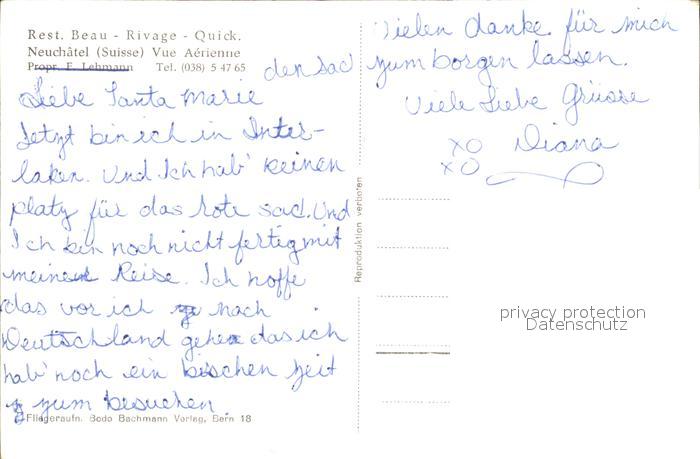 Rest. Beau - Rivage - Quick.
Neuchâtel (Suisse) Vue Aérienne
Propr. F. Lehmann Tel. (038) 5 47 65
Liebe Tanta Marie
Jetzt bin ich in Inter-
laken. Und Ich hab' keinen
platz für das rote sac. Und
Ich bin noch nicht fertig mit
meinen Reise. Ich hoffe
das vor ich nach
Deutschland gehen das ich
hab' noch ein bischen zeit
zum besuchen.
Fliegeraufn. Bodo Bachmann Verlag, Bern 18
Reproduktion verboten
Vielen danke für mich
den sac zum borgen lassen.
Viele Liebe Grüsse
XO Diana
XO
privacy protection
Datenschutz